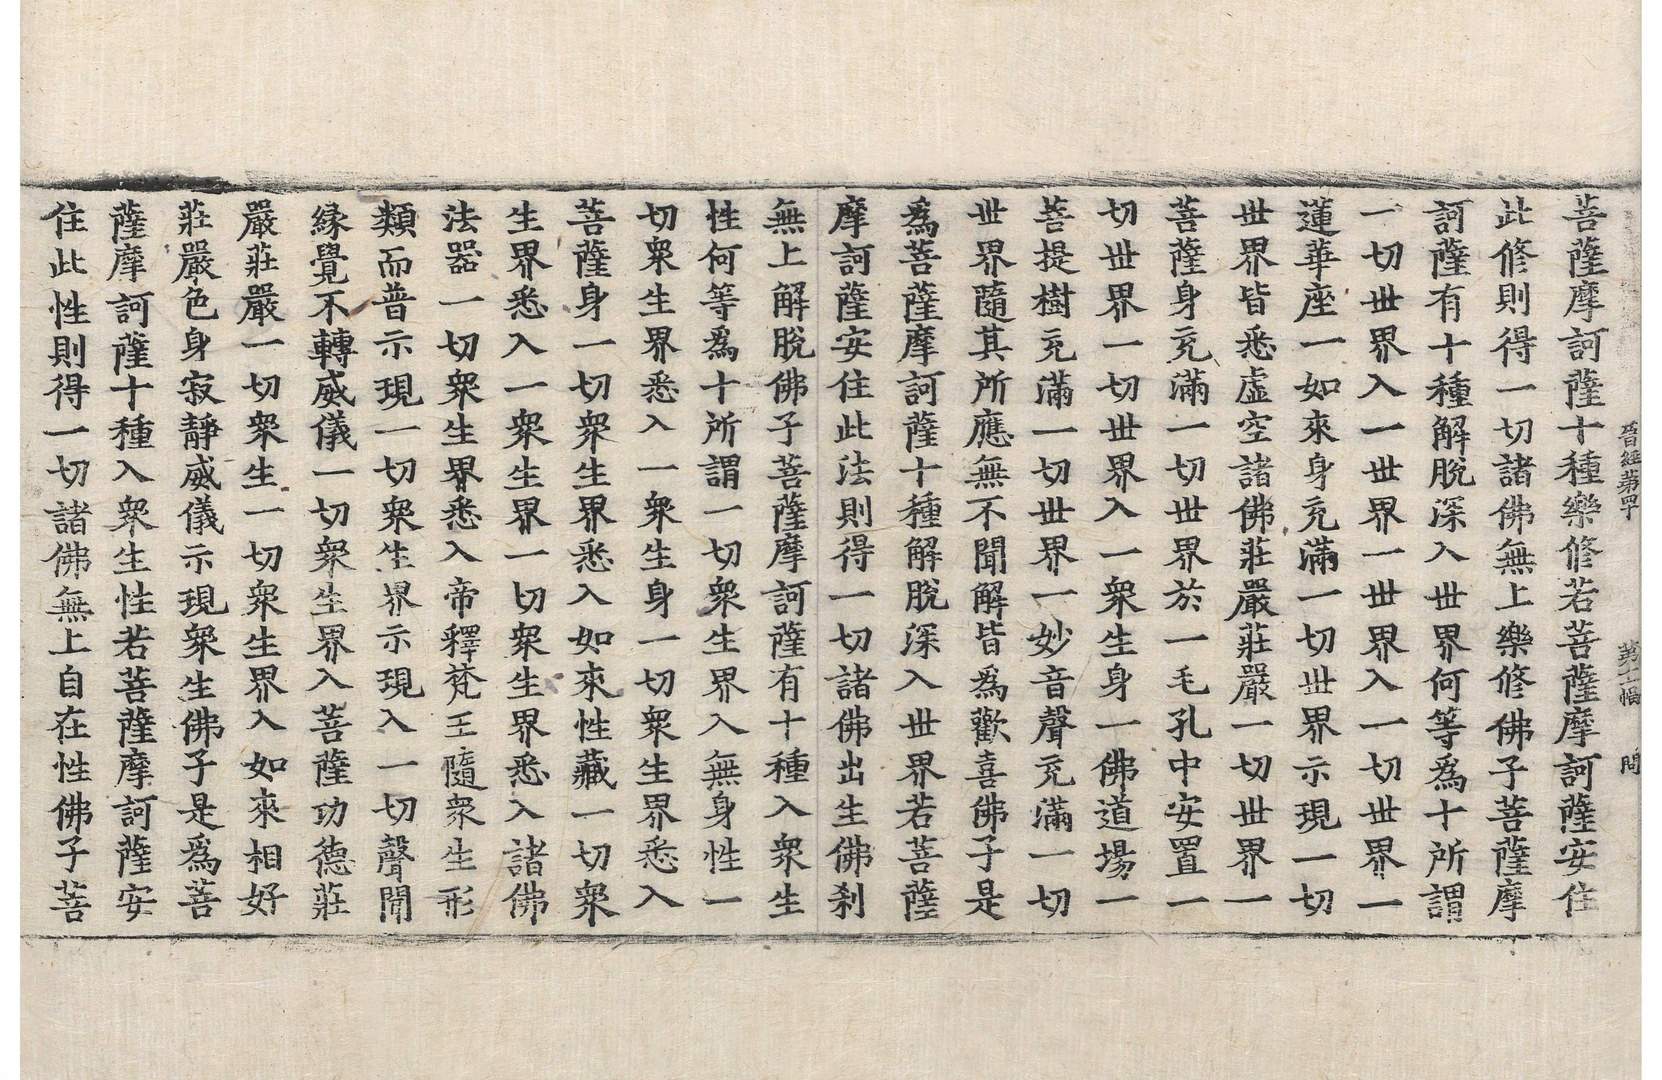 晉經第四十　第十二幅　問
菩薩摩訶薩十種樂修若菩薩摩訶薩安住
此修則得一切諸佛無上樂修佛子菩薩摩
訶薩有十種解脫深入世界何等為十所謂
一切世界入一世界一世界入一切世界一
蓮華座一如來身充滿一切世界示現一切
世界皆悉虛空諸佛莊嚴莊嚴一切世界一
菩薩身充滿一切世界於一毛孔中安置一
切世界一切世界入一眾生身一佛道場一
菩提樹充滿一切世界一妙音聲充滿一切
世界隨其所應無不聞解皆為歡喜佛子是
為菩薩摩訶薩十種解脫深入世界若菩薩
摩訶薩安住此法則得一切諸佛出生佛剎
無上解脫佛子菩薩摩訶薩有十種入眾生
性何等為十所謂一切眾生界入無身性一
切眾生界悉入一眾生身一切眾生界悉入
菩薩身一切眾生界悉入如來性藏一切眾
生界悉入一眾生界一切眾生界悉入諸佛
法器一切眾生界悉入帝釋梵王隨眾生形
類而普示現一切眾生界示現入一切聲聞
緣覺不轉威儀一切眾生界入菩薩功德莊
嚴莊嚴一切眾生一切眾生界入如來相好
莊嚴色身寂靜威儀示現眾生佛子是為菩
薩摩訶薩十種入眾生性若菩薩摩訶薩安
住此性則得一切諸佛無上自在性佛子菩